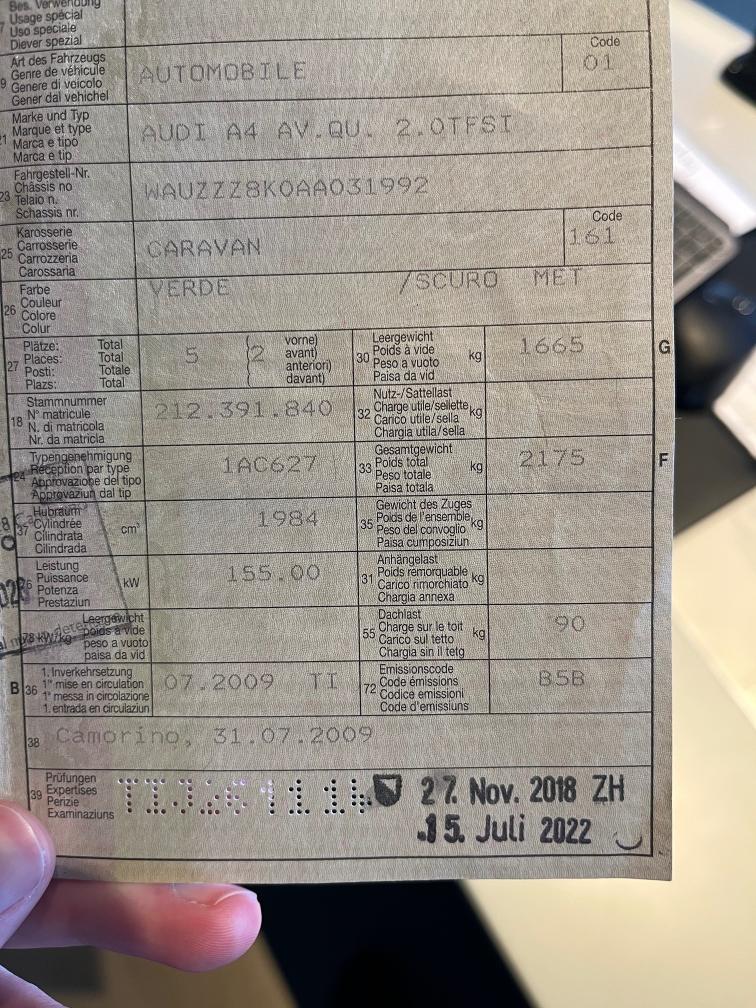 Bes. Verwendung
Usage spécial
Uso speciale
Diever spezial
Art des Fahrzeugs
Genre de véhicule
Genere di veicolo
Gener dal vehichel
AUTOMOBILE
Code
01
Marke und Typ
Marque et type
Marca e tipo
Marca e tip
AUDI A4 AV.QU. 2.0TFSI
23
Fahrgestell-Nr.
Châssis no
Telaio n.
Schassis nr.
WAUZZZ8K0AA031992
25
Karosserie
Carrosserie
Carrozzeria
Carossaria
CARAVAN
Code
161
26
Farbe
Couleur
Colore
Colur
VERDE /SCURO MET
27
Plätze: Total
Places: Total
Posti: Totale
Plazs: Total
5 (2
vorne)
avant)
anteriori)
davant)
30
Leergewicht
Poids à vide
Peso a vuoto
Paisa da vid
kg
1665
G
18
Stammnummer
N° matricule
N. di matricola
Nr. da matricla
212.391.840
32
Nutz-/Sattellast
Charge utile/sellette
Carico utile/sella
Chargia utila/sella
kg
Typengenehmigung
Réception par type
Approvazione del tipo
Approvaziun dal tip
1AC627
33
Gesamtgewicht
Poids total
Peso totale
Paisa totala
kg
2175
F
37
Hubraum
Cylindrée
Cilindrata
Cilindrada
cm³
1984
35
Gewicht des Zuges
Poids de l'ensemble
Peso del convoglio
Paisa cumposiziun
kg
Leistung
Puissance
Potenza
Prestaziun
kW
155.00
31
Anhängelast
Poids remorquable
Carico rimorchiato
Chargia annexa
kg
Leergewicht
poids à vide
peso a vuoto
paisa da vid
55
Dachlast
Charge sur le toit
Carico sul tetto
Chargia sin il tetg
kg
90
B 36
1. Inverkehrsetzung
1re mise en circulation
1a messa in circolazione
1. entrada en circulaziun
07.2009 TI
72
Emissionscode
Code émissions
Codice emissioni
Code d'emissiuns
B5B
38
Camorino, 31.07.2009
39
Prüfungen
Expertises
Perizie
Examinaziuns
27. Nov. 2018 ZH
15. Juli 2022